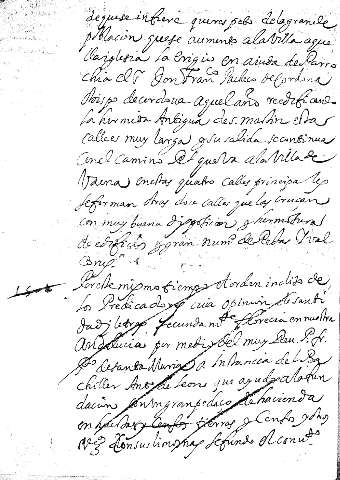 de que se infiere que respeto de la grande
poblacion que se aumento a la Villa aque
lla Iglesia la erigio en aiuda de Parro
chia el S.r Don Fran.co Pacheco de Cordova
Obispo de Cordova aquel año reedificando
la hermita Antigua de S. Martin esta
calle es muy larga y su salida se continua
en el Camino R.l que va a la Villa de
Vaena en estas quatro calles principales
se forman otras doce calles que las cruçan
con muy buena disposicion y hermosura
de edificios y gran num.o de
Por este mismo tiempo el orden inclito de
los Predicadores cuia opinion de santi
dad y letras fecundam.te florecia en nuestra
Andalucia por medio del muy Rev. P. fr.
de santa Maria a Instancia del Ba
chiller Ant.o de Leon que ayudo a la fun
dacion con gran pedaço de hacienda
en tierras y Censos y
con sus limosnas se fundo el conv.to